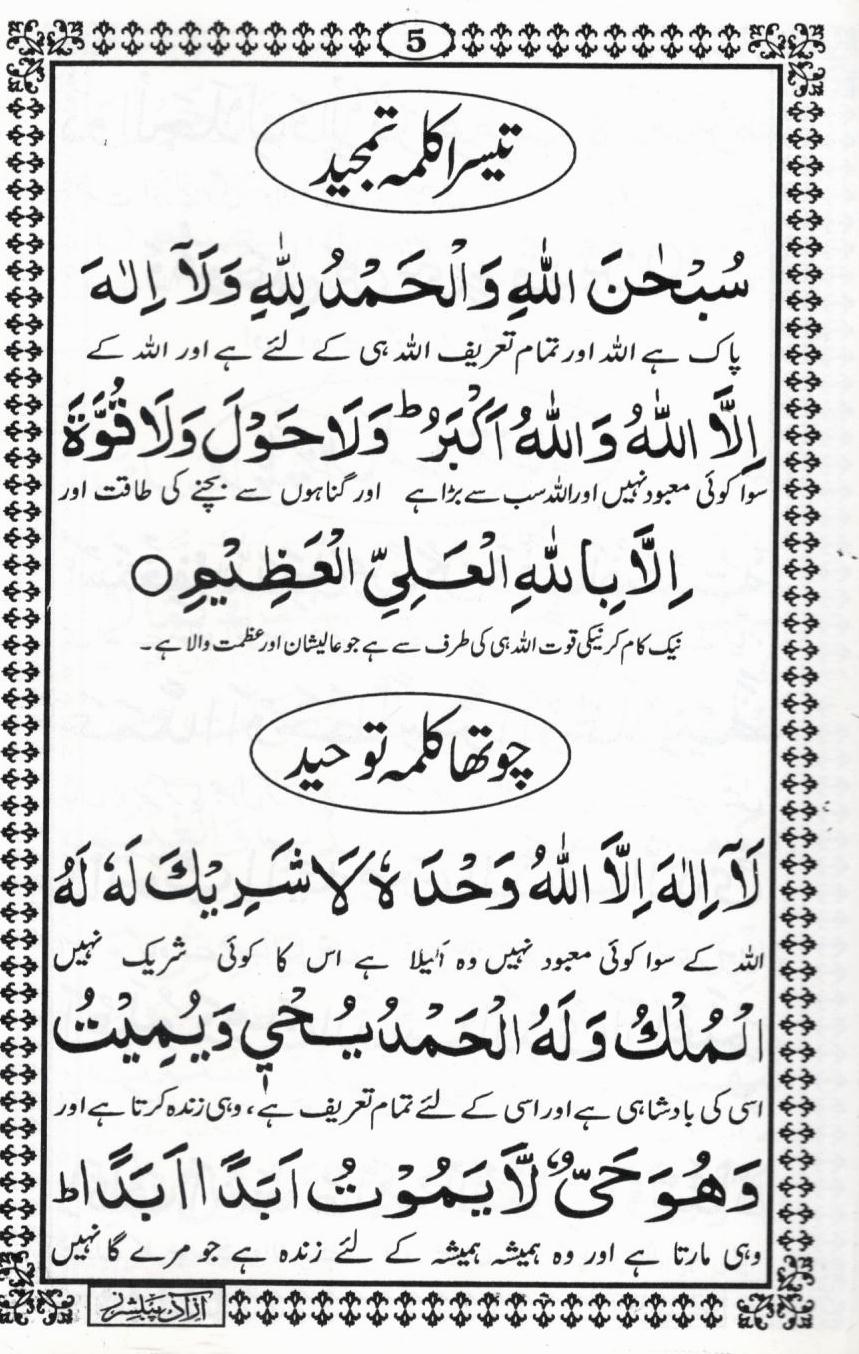 5
تیسرا کلمہ تمجید
سُبْحٰنَ اللّٰهِ وَالْحَمْدُ لِلّٰهِ وَلَآ اِلٰهَ
پاک ہے اللہ اور تمام تعریف اللہ ہی کے لئے ہے اور اللہ کے
اِلَّا اللّٰهُ وَاللّٰهُ اَكْبَرُ ؕ وَلَا حَوْلَ وَلَا قُوَّةَ
سوا کوئی معبود نہیں اور اللہ سب سے بڑا ہے اور گناہوں سے بچنے کی طاقت اور
اِلَّا بِاللّٰهِ الْعَلِيِّ الْعَظِيْمِ ○
نیک کام کرنیکی قوت اللہ ہی کی طرف سے ہے جو عالیشان اور عظمت والا ہے۔
چوتھا کلمہ توحید
لَآ اِلٰهَ اِلَّا اللّٰهُ وَحْدَهٗ لَا شَرِيْكَ لَهٗ لَهُ
اللہ کے سوا کوئی معبود نہیں وہ اکیلا ہے اس کا کوئی شریک نہیں
الْمُلْكُ وَلَهُ الْحَمْدُ يُحْيٖ وَيُمِيْتُ
اسی کی بادشاہی ہے اور اسی کے لئے تمام تعریف ہے، وہی زندہ کرتا ہے اور
وَهُوَ حَيٌّ لَّا يَمُوْتُ اَبَدًا اَبَدًا ؕ
وہی مارتا ہے اور وہ ہمیشہ ہمیشہ کے لئے زندہ ہے جو مرے گا نہیں
آزاد پبلشرز